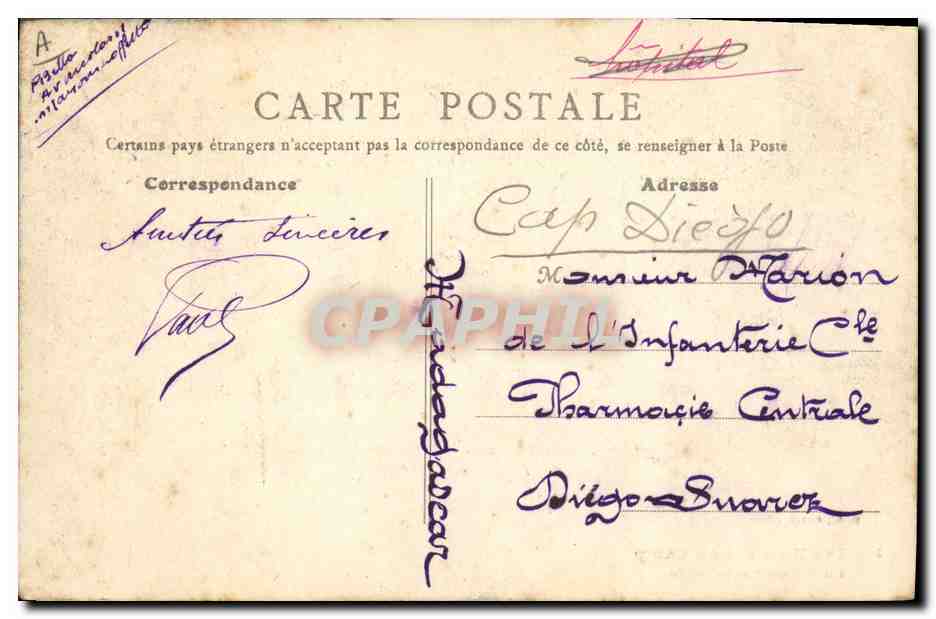 A
hôpital
CARTE POSTALE
Certains pays étrangers n'acceptant pas la correspondance de ce côté, se renseigner à la Poste
Correspondance
Adresse
Amitiés sincères
Paul
Madagascar
Cap Diégo
Monsieur Marion
de l'Infanterie Cle
Pharmacie Centrale
Diégo-Suarez
CPAPHIL